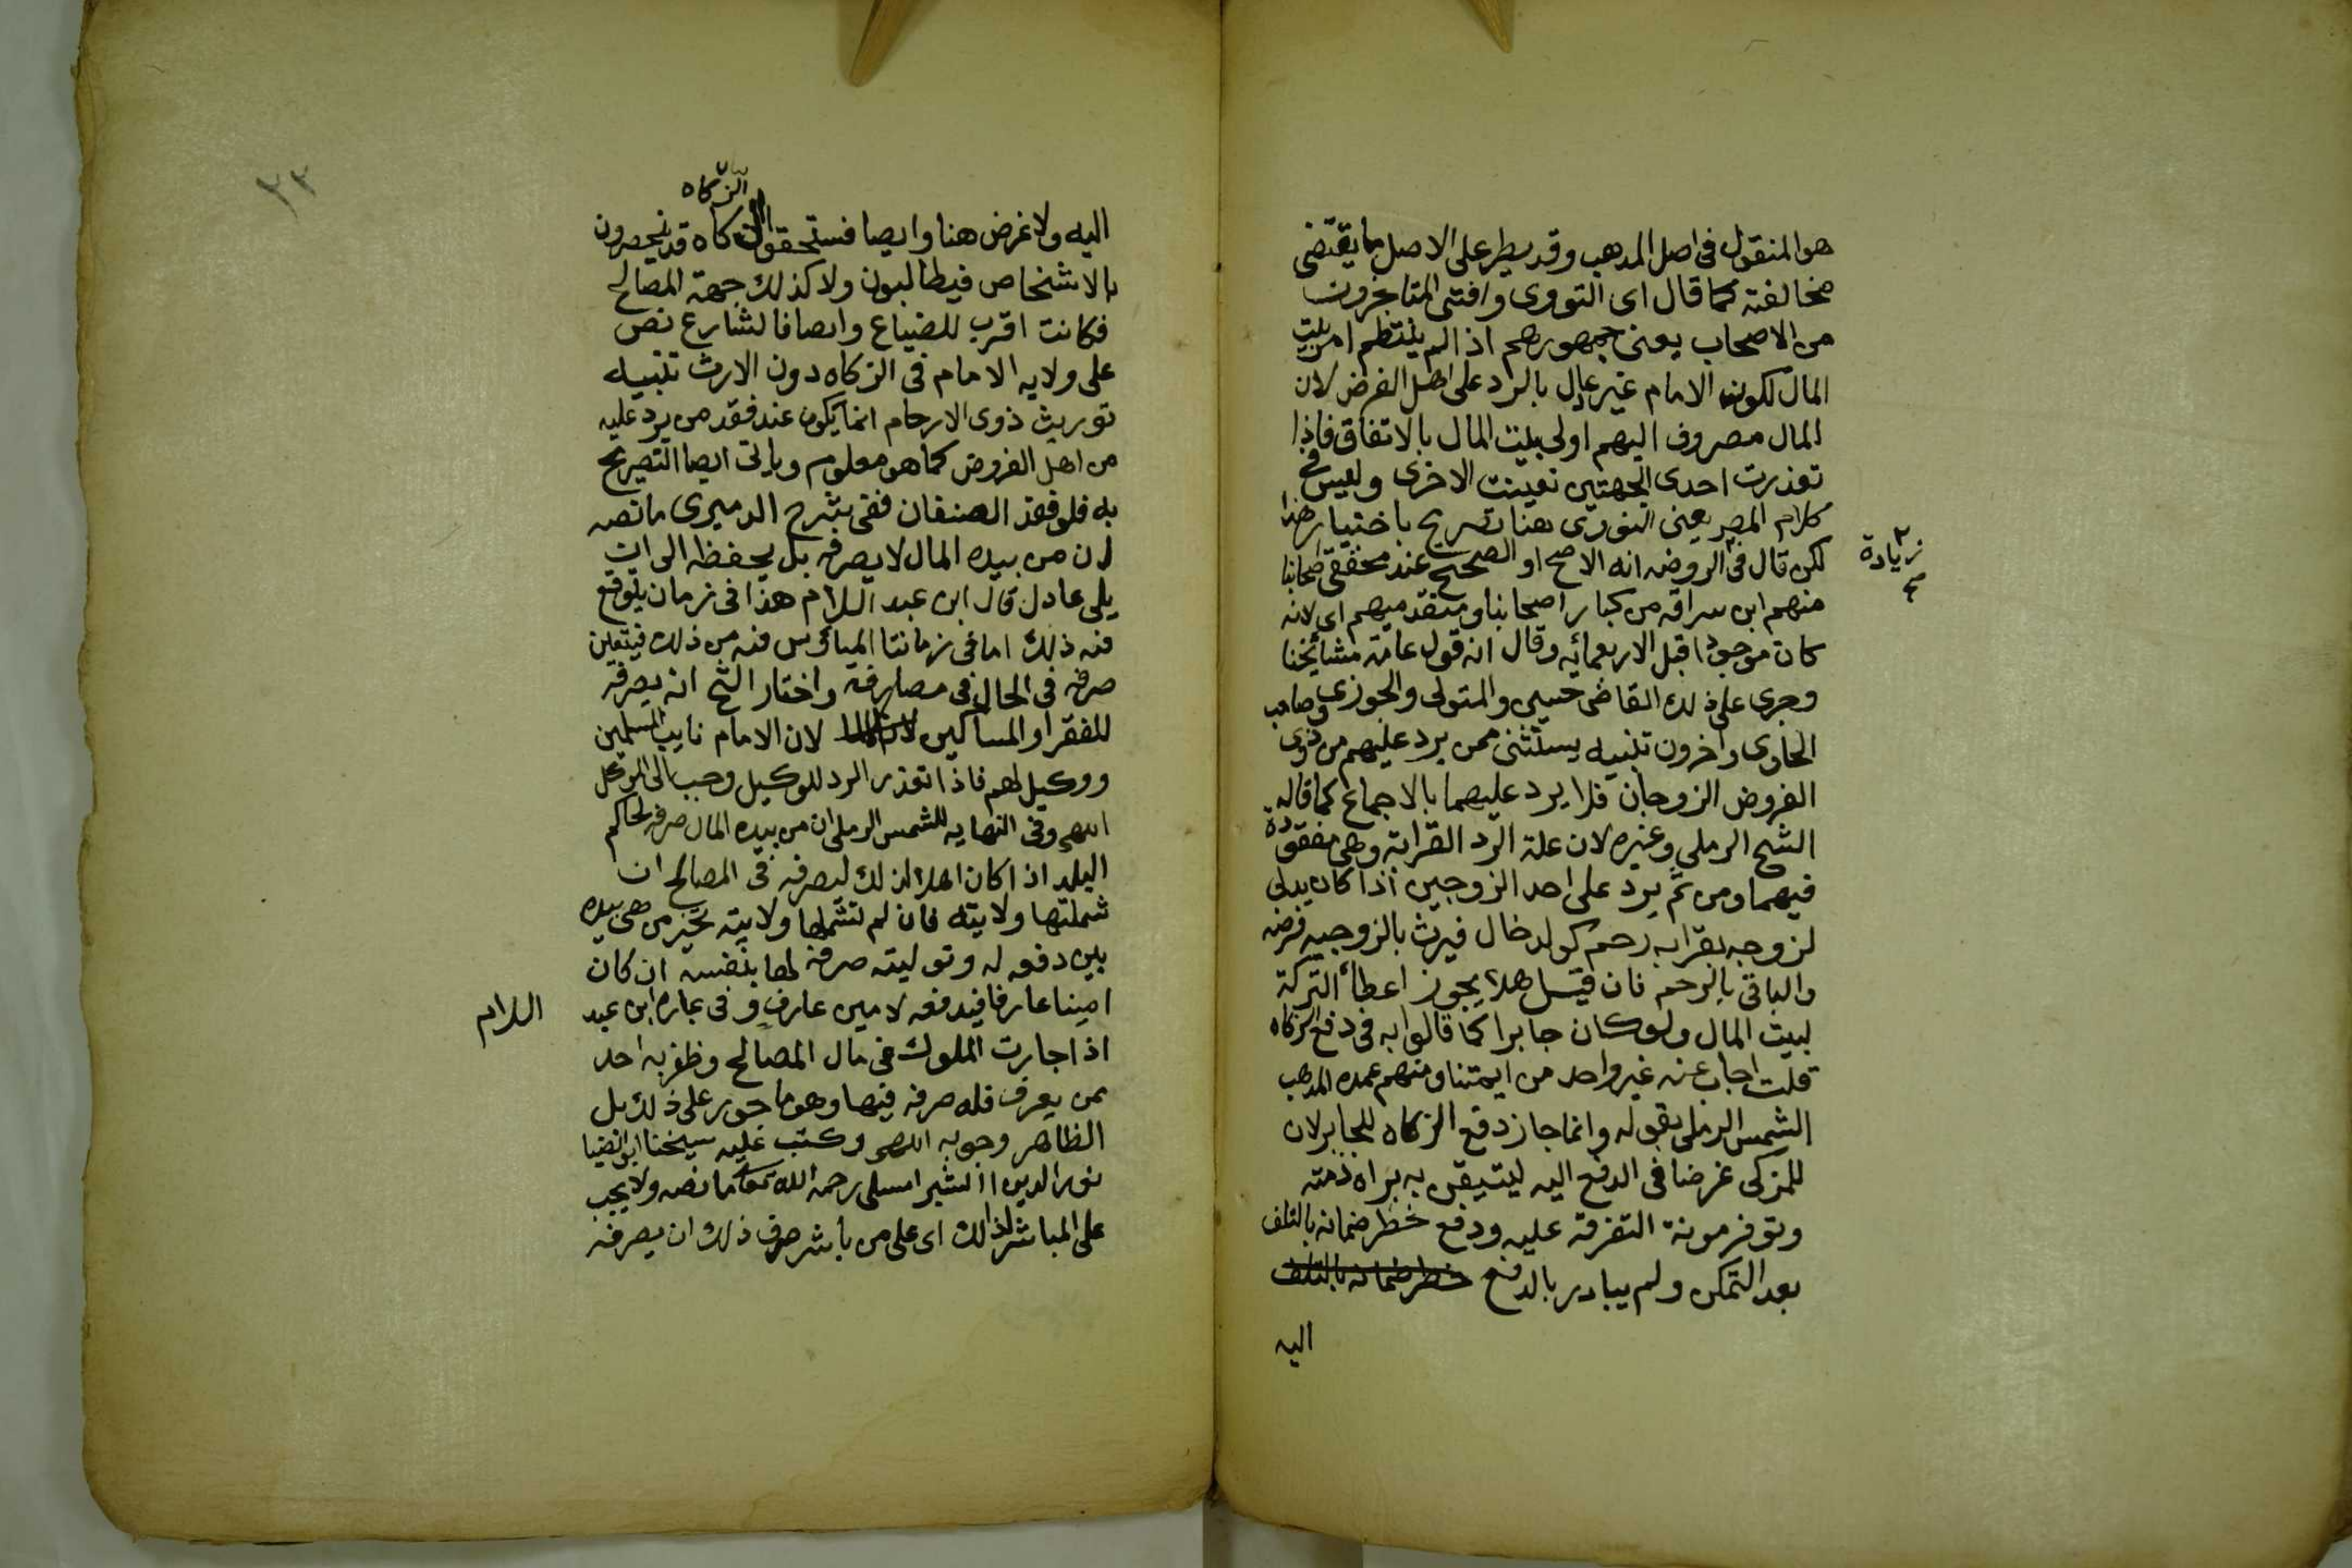 هو المنقول فى اصل المدهب وقد يطر على الاصل ما يقتضى
مخالفته كما قال اى النووى وافتى المتاخرون
من الاصحاب يعنى جمهورهم اذا لم ينتظم امر بيت
المال لكون الامام غير عادل بالرد على اهل الفرض لان
المال مصروف اليهم او لى بيت المال بالاتفاق فاذا
تعذرت احدى الجهتين تعينت الاخرى وليس فى
كلام المص يعنى النووى هنا تصريح باختيار هذا
لكن قال فى الروضه انه الاصح او الصحيح عند محققى اصحابنا
زيادة
منهم ابن سراقه من كبار اصحابنا ومتقدميهم اى لانه
كان موجودا قبل الاربعمائه وقال انه قول عامة مشائخنا
وجرى على ذلك القاضى حسين والمتولى والجوزى وصاحب
الحاوى واخرون تنبيه يستثنى ممن يرد عليهم من ذوى
الفروض الزوجان فلا يرد عليهما بالاجماع كما قاله
الشيخ الرملي وغيره لان علة الرد القرابة وهى مفقودة
فيهما ومن ثم يرد على احد الزوجين اذا كان يدلى
لزوجه بقرابه رحم كولد خال فيرث بالزوجيه فرضه
والباقى بالرحم فان قيل هلا يجوز اعطاء التركة
لبيت المال ولو كان جايرا كما قالوا به فى دفع الزكاه
قلت اجاب عنه غير واحد من ايمتنا ومنهم عمدة المدهب
الشمس الرملى بقوله وانما جاز دفع الزكاه للجاير لان
للمزكى غرضا فى الدفع اليه ليتيقن به براه ذمته
وتوفر مونة التفرقة عليه ودفع خطر ضمانه بالتلف
بعد التمكن ولم يبادر بالدفع خطر ضمانه بالتلف
اليه
٣٣
الزكاه
اليه ولا غرض هنا وايصا فمستحقوا الزكاه قد ينحصرون
بالاشخاص فيطالبون ولا كذلك جهة المصالح
فكانت اقرب للضياع وايصا فالشارع نص
على ولايه الامام فى الزكاه دون الارث تنبيه
توريث ذوى الارحام انما يكون عند فقد من يرد عليه
من اهل الفروض كما هو معلوم وياتى ايصا التصريح
به فلو فقد الصنفان ففى شرح الدميرى ما نصه
ان من بيده المال لا يصرفه بل يحفظه الى ان
يلى عادل قال ابن عبد السلام هذا فى زمان يتوقع
فيه ذلك اما فى زماننا الميائوس فيه من ذلك فيتعين
صرفه فى الحال فى مصارفه واختار الشيخ انه يصرفه
للفقرا والمساكين لان الامام نايب المسلمين
ووكيل لهم فاذا تعذر الرد للوكيل وجب الى الموكل
انتهى وفى النهايه للشمس الرملى ان من بيده المال صرفه لحاكم
البلد اذا كان اهلا لذلك ليصرفه فى المصالح ان
شملتها ولايته فان لم تشملها ولايته تخير من هى بيده
بين دفعه له وتوليته صرفه لها بنفسه ان كان
امينا عارفا فيدفعه لامين عارف وفى عبارة ابن عبد
السلام
اذا جارت الملوك فى مال المصالح وظفر به احد
ممن يعرف فله صرفه فيها وهو ماجور على ذلك بل
الظاهر وجوبه انتهى وكتب عليه شيخنا ابو الضيا
نور الدين الشبراملسى رحمه الله تعالى ما نصه ولا يجب
على المباشر لذلك اى على من باشر صرف ذلك ان يصرفه